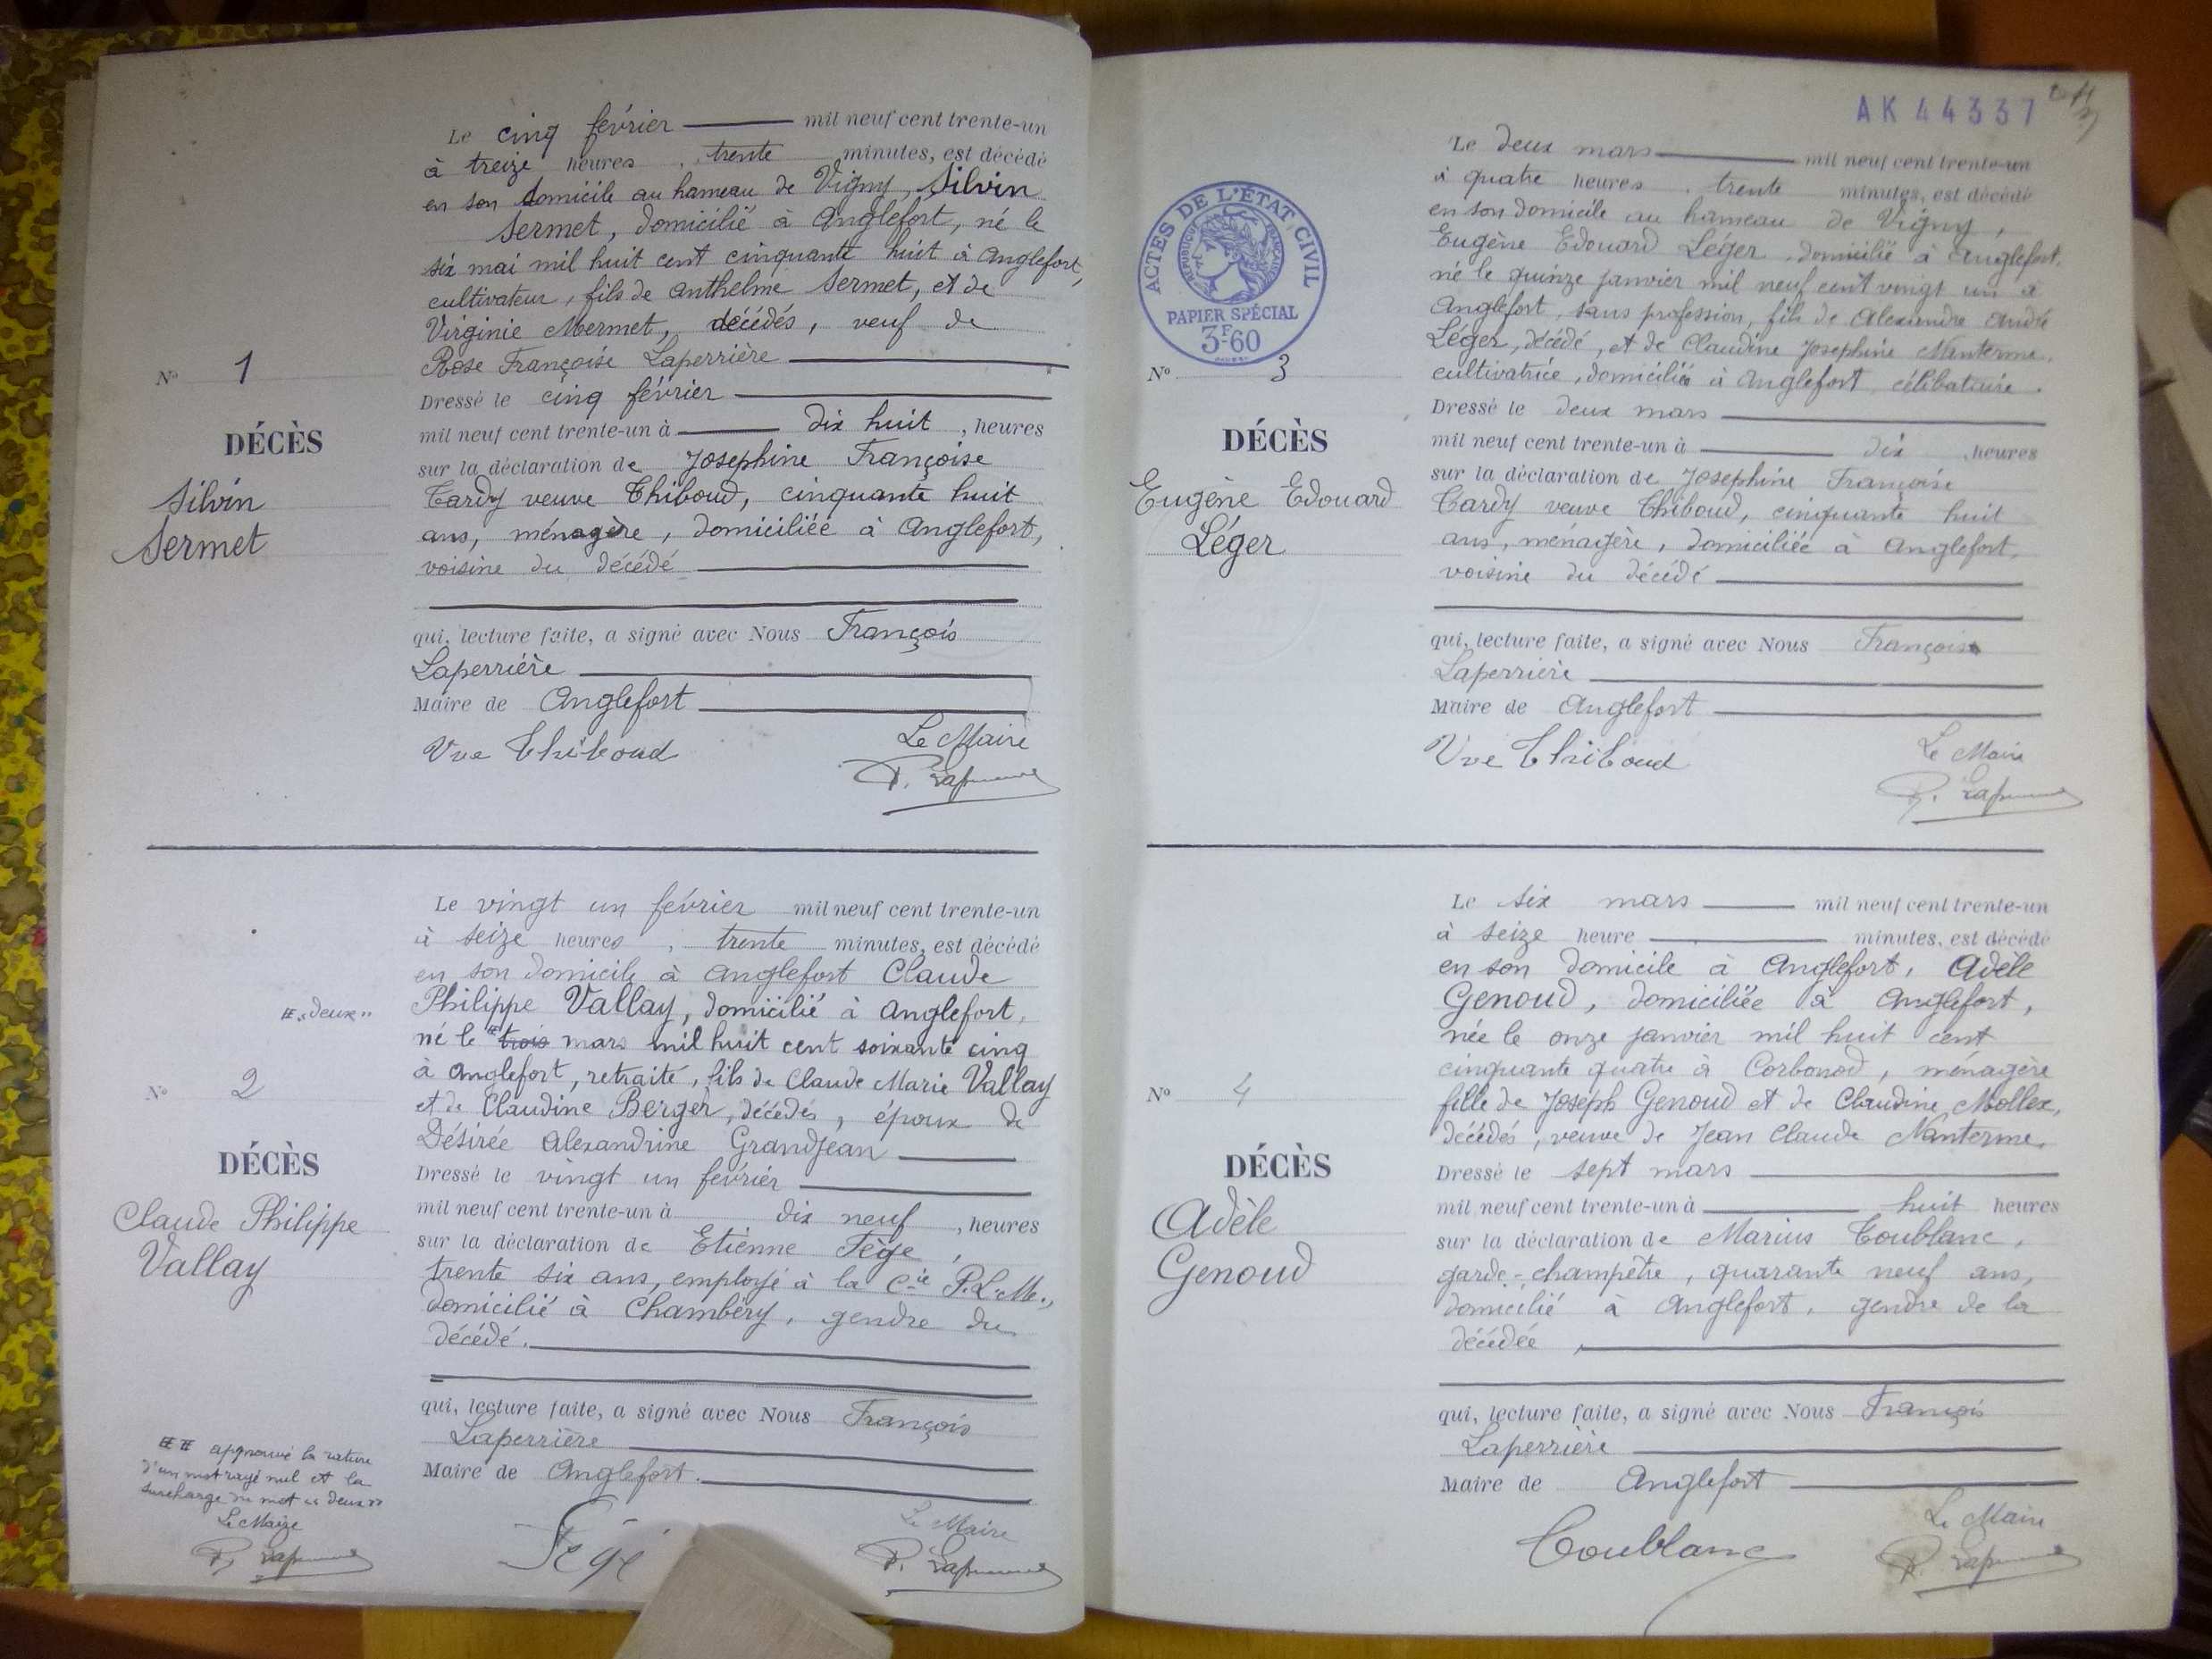 Le cinq février mil neuf cent trente-un
à treize heures, trente minutes, est décédé
en son domicile au hameau de Vigny, Silvin
Sermet, domicilié à Anglefort, né le
six mai mil huit cent cinquante huit à Anglefort,
cultivateur, fils de Anthelme Sermet, et de
Virginie Mermet, décédés, veuf de
Rose Françoise Laperrière
Dressé le cinq février
mil neuf cent trente-un à dix huit, heures
sur la déclaration de Joséphine Françoise
Tardy veuve Thiboud, cinquante huit
ans, ménagère, domiciliée à Anglefort,
voisine du décédé
qui, lecture faite, a signé avec Nous François
Laperrière
Maire de Anglefort
Vve Thiboud
Le Maire
F. Laperrière
N° 1
DÉCÈS
Silvin
Sermet
Le vingt un février mil neuf cent trente-un
à seize heures, trente minutes, est décédé
en son domicile à Anglefort Claude
Philippe Vallay, domicilié à Anglefort,
né le trois mars mil huit cent soixante cinq
à Anglefort, retraité, fils de Claude Marie Vallay
et de Claudine Berger, décédés, époux de
Désirée Alexandrine Grandjean
Dressé le vingt un février
mil neuf cent trente-un à dix neuf, heures
sur la déclaration de Etienne Fège,
trente six ans, employé à la Cie P.L.M.,
domicilié à Chambéry, gendre du
décédé.
qui, lecture faite, a signé avec Nous François
Laperrière
Maire de Anglefort.
Fégé
Le Maire
F. Laperrière
"deux"
N° 2
DÉCÈS
Claude Philippe
Vallay
approuvé la rature
d'un mot rayé nul et la
surcharge du mot "deux"
Le Maire
F. Laperrière
AK 44337
Le deux mars mil neuf cent trente-un
à quatre heures, trente minutes, est décédé
en son domicile au hameau de Vigny,
Eugène Edouard Léger, domicilié à Anglefort,
né le quinze janvier mil neuf cent vingt un à
Anglefort, sans profession, fils de Alexandre André
Léger, décédé, et de Claudine Joséphine Nanterme,
cultivatrice, domiciliée à Anglefort, célibataire.
Dressé le deux mars
mil neuf cent trente-un à dix, heures
sur la déclaration de Joséphine Françoise
Tardy veuve Thiboud, cinquante huit
ans, ménagère, domiciliée à Anglefort,
voisine du décédé
qui, lecture faite, a signé avec Nous François
Laperrière
Maire de Anglefort
Vve Thiboud
Le Maire
F. Laperrière
ACTES DE L'ÉTAT CIVIL
RÉPUBLIQUE FRANÇAISE
PAPIER SPÉCIAL
3F60
N° 3
DÉCÈS
Eugène Edouard
Léger
Le six mars mil neuf cent trente-un
à seize heure minutes, est décédé
en son domicile à Anglefort, Adèle
Genoud, domiciliée à Anglefort,
née le onze janvier mil huit cent
cinquante quatre à Corbonod, ménagère
fille de Joseph Genoud et de Claudine Mollex,
décédés, veuve de Jean Claude Nanterme.
Dressé le sept mars
mil neuf cent trente-un à huit heures
sur la déclaration de Marius Coublanc,
garde-champêtre, quarante neuf ans,
domicilié à Anglefort, gendre de la
décédée,
qui, lecture faite, a signé avec Nous François
Laperrière
Maire de Anglefort
Coublanc
Le Maire
F. Laperrière
N° 4
DÉCÈS
Adèle
Genoud